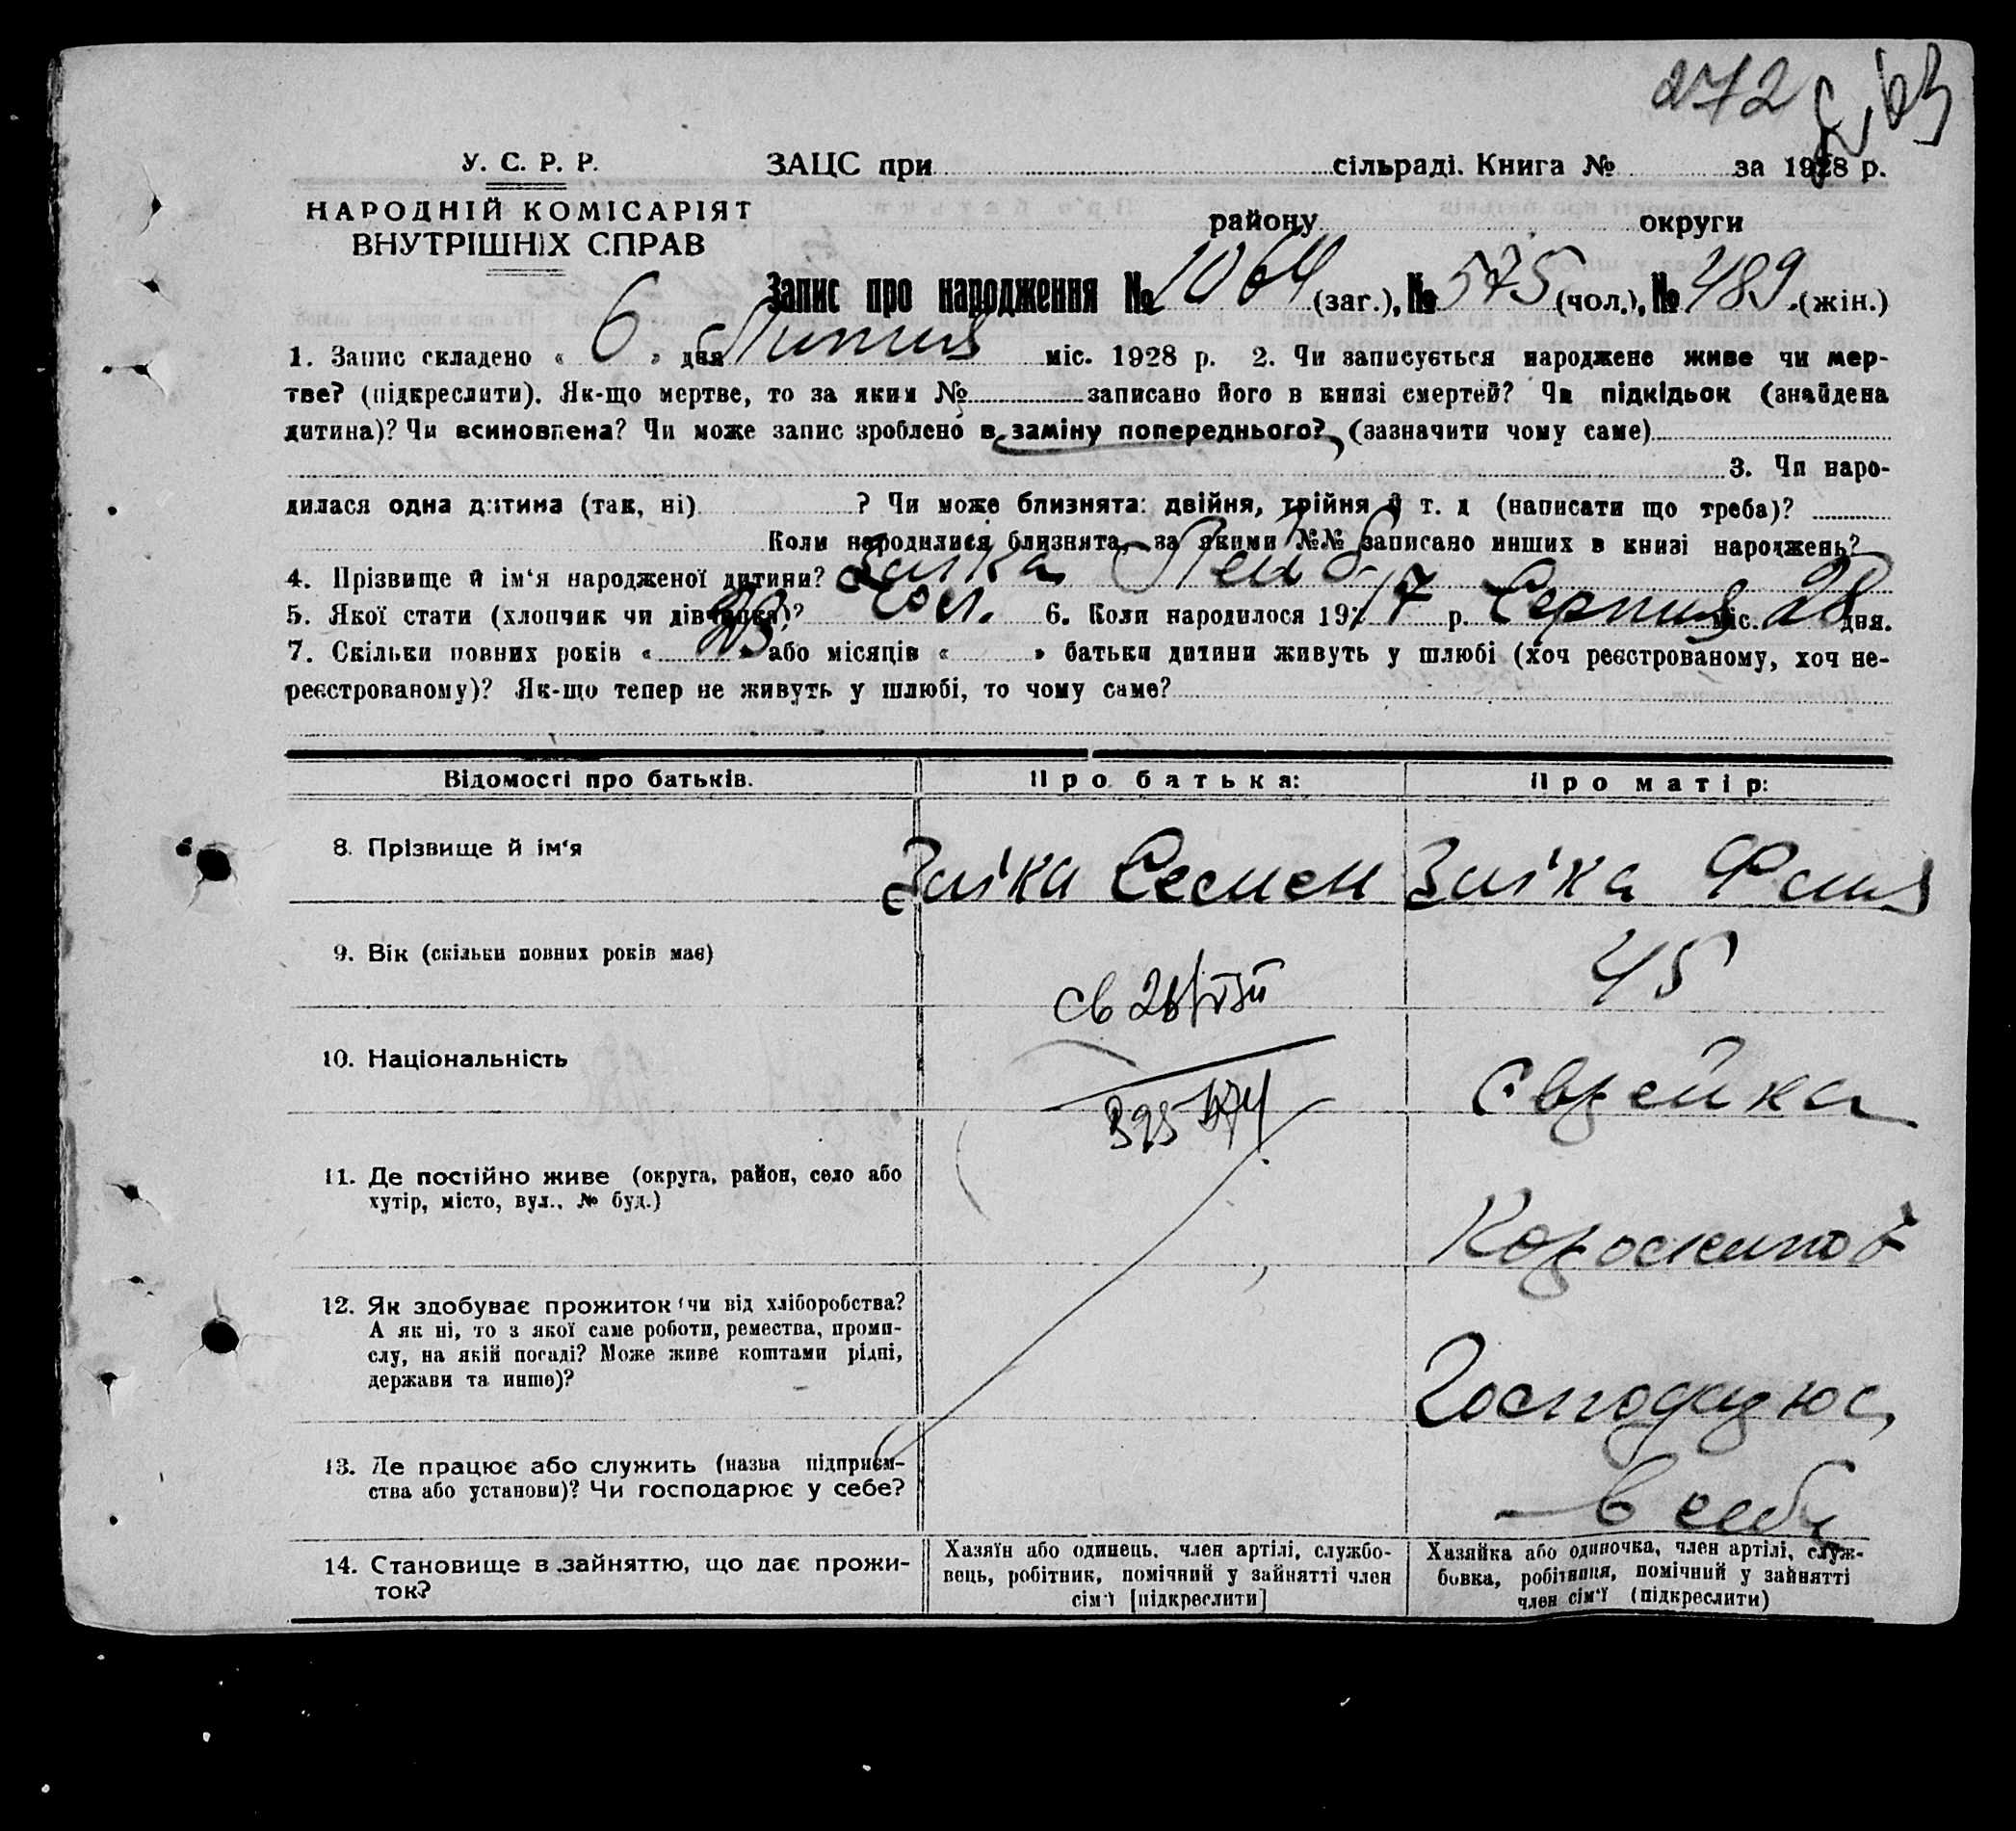 272
У. С. Р. Р.
ЗАЦС при сільраді. Книга № за 1928 р.
НАРОДНІЙ КОМІСАРІЯТ
ВНУТРІШНІХ СПРАВ
району округи
Запис про народження № 1064 (заг.), № 575 (чол.), № 489 (жін.)
1. Запис складено « 6 » дня Липня міс. 1928 р. 2. Чи записується народжене живе чи мер-
тве? (підкреслити). Як-що мертве, то за яким № записано його в книзі смертей? Чи підкідьок (знайдена
дитина)? Чи всиновлена? Чи може запис зроблено в заміну попереднього? (зазначити чому саме)
3. Чи наро-
дилася одна дитина (так, ні) ? Чи може близнята: двійня, трійня й т. д (написати що треба)?
Коли народилися близнята, за якими №№ записано инших в книзі народжень?
4. Прізвище й ім‘я народженої дитини? Заїка Лейб
5. Якої стати (хлопчик чи дівчинка)? Чол. 6. Коли народилося 1917 р. Серпня міс. 28 дня.
7. Скільки повних років « » або місяців « » батьки дитини живуть у шлюбі (хоч реєстрованому, хоч не-
реєстрованому)? Як-що тепер не живуть у шлюбі, то чому саме?
Відомості про батьків.
Про батька:
Про матір:
8. Прізвище й ім‘я
Заїка Семен
Заїка Фаня
9. Вік (скільки повних років має)
45
св 28/VIII
10. Національність
єврейка
11. Де постійно живе (округа, район, село або
хутір, місто, вул., № буд.)
Коростишів
12. Як здобуває прожиток (чи від хліборобства?
А як ні, то з якої саме роботи, ремества, проми-
слу, на якій посаді? Може живе коштами рідні,
держави та инше)?
13. Де працює або служить (назва підприєм-
ства або установи)? Чи господарює у себе?
в себе
14. Становище в зайняттю, що дає прожи-
ток?
Хазяїн або одинець, член артілі, службо-
вець, робітник, помічний у зайнятті член
сім‘ї [підкреслити]
Хазяйка або одиночка, член артілі, служ-
бовка, робітниця, помічний у зайнятті
член сім‘ї (підкреслити)